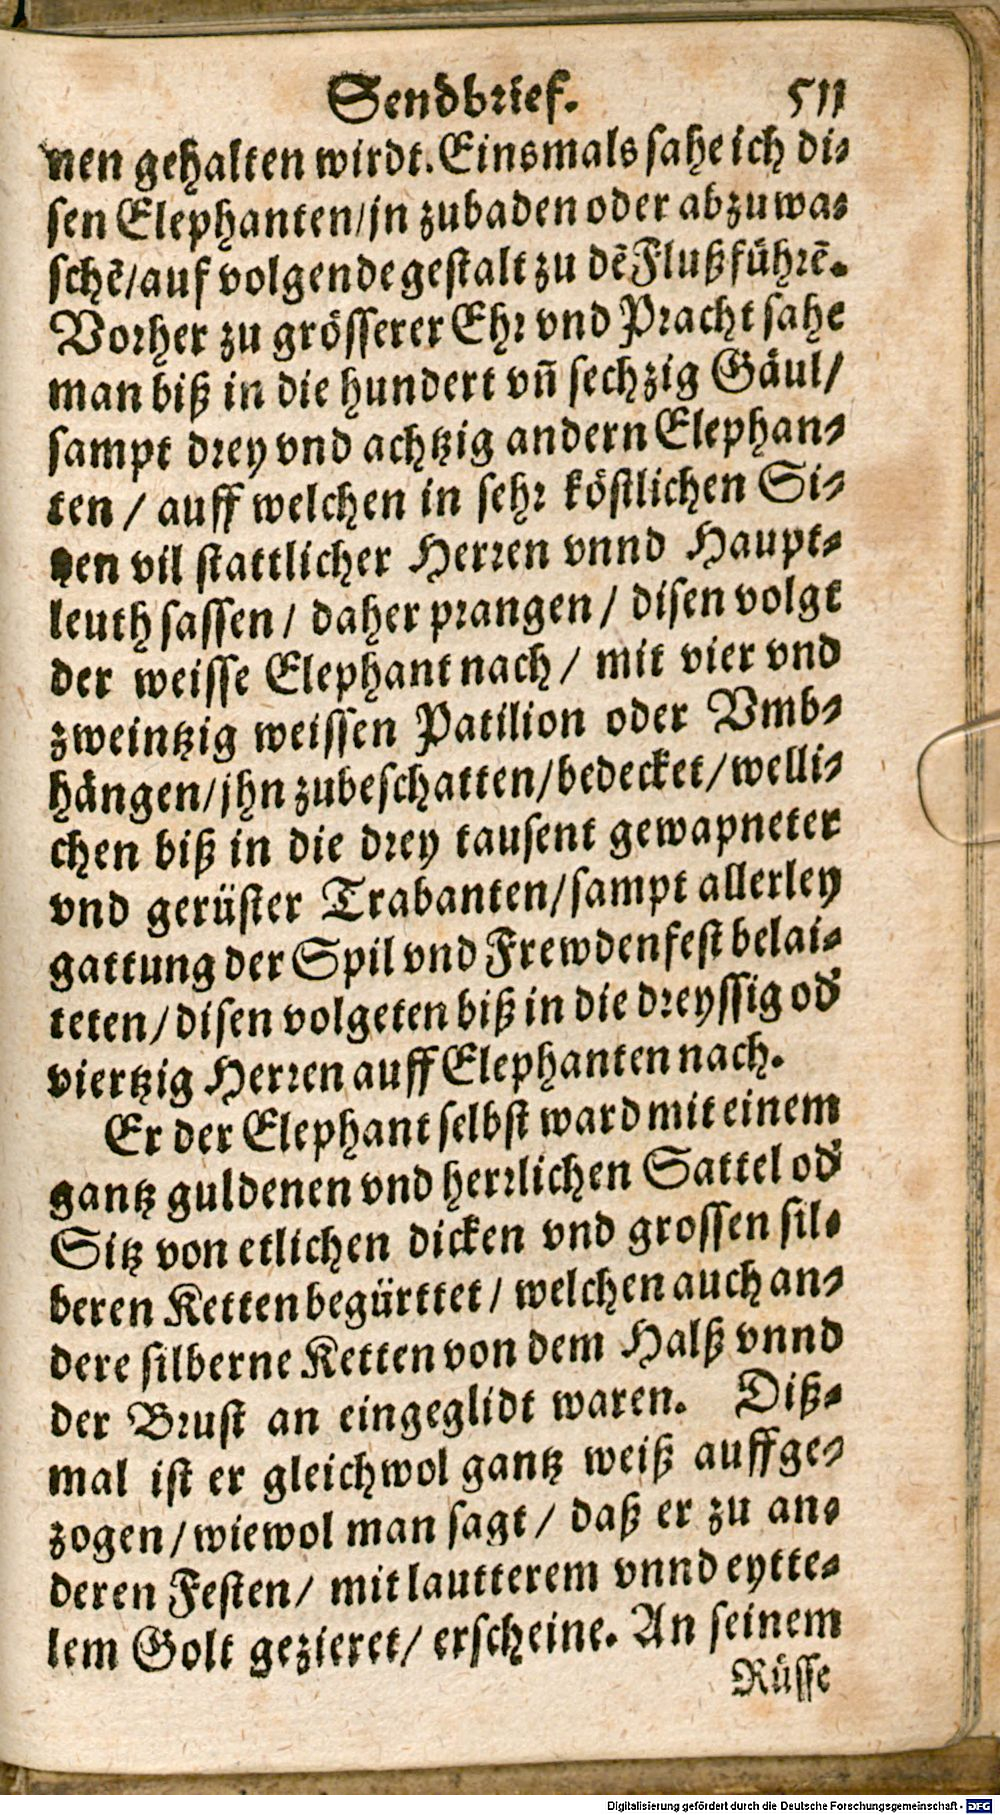 Sendbrief. 511
nen gehalten wirdt. Einsmals sahe ich di-
sen Elephanten/ jn zubaden oder abzuwa-
schẽ/ auf volgende gestalt zu dẽ Fluß führẽ.
Vorher zu grösserer Ehr vnd Pracht sahe
man biß in die hundert vñ sechzig Gäul/
sampt drey vnd achtzig andern Elephan-
ten / auff welchen in sehr köstlichen Si-
tzen vil stattlicher Herren vnnd Haupt-
leuth sassen / daher prangen / disen volgt
der weisse Elephant nach / mit vier vnd
zweintzig weissen Patilion oder Vmb-
hängen/ jhn zubeschatten/ bedecket/ welli-
chen biß in die drey tausent gewapneter
vnd gerüster Trabanten/ sampt allerley
gattung der Spil vnd Frewdenfest belai-
teten/ disen volgeten biß in die dreyssig od'
viertzig Herren auff Elephanten nach.
Er der Elephant selbst ward mit einem
gantz guldenen vnd herrlichen Sattel od'
Sitz von etlichen dicken vnd grossen sil-
beren Ketten begürttet / welchen auch an-
dere silberne Ketten von dem Halß vnnd
der Brust an eingeglidt waren. Diß-
mal ist er gleichwol gantz weiß auffge-
zogen / wiewol man sagt / daß er zu an-
deren Festen/ mit lautterem vnnd eytte-
lem Golt gezieret/ erscheine. An seinem
Rüsse
Digitalisierung gefördert durch die Deutsche Forschungsgemeinschaft - DFG